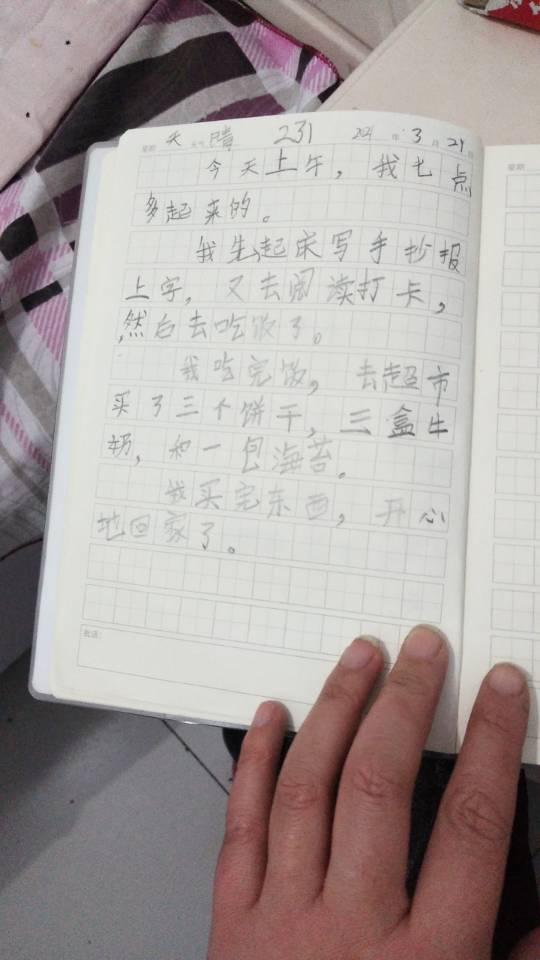 星期 天 天气 晴 231 2021 年 3 月 21 日
今天上午，我七点
多起来的。
我先起床写手抄报
上字，又去阅读打卡，
然后去吃饭了。
我吃完饭，去超市
买了三个饼干，三盒牛
奶，和一包海苔。
我买完东西，开心
地回家了。
批语：
星期